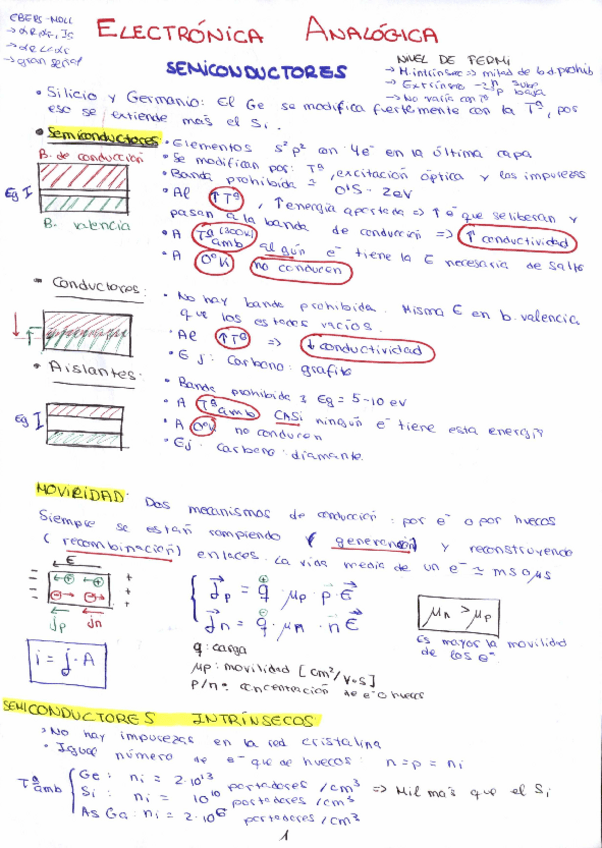 EBERS-MOLL
→ αR αF, Is
→ gran señal
ELECTRÓNICA ANALÓGICA
SEMICONDUCTORES
NIVEL DE FERMI
→ M. intrínsec → mitad de b.d. prohib
→ Extrínsec → n sube
p baja
→ No varía con Tª
• Silicio y Germanio: El Ge se modifica fuertemente con la Tª, por
eso se extiende más el Si.
• Semiconductores:
• Elementos s²p² con 4e⁻ en la última capa
• Se modifican por: Tª, excitación óptica y las impurezas
• Banda prohibida = 0'5 - 2eV
• Al ↑Tª, ↑energía aportada => ↑ e⁻ que se liberan y
pasan a la banda de conducción => ↑ conductividad
• A Tª amb (300K) algún e⁻ tiene la E necesaria de salto
• A 0°K no conducen
B. de conducción
Eg I
B. valencia
• Conductores:
• No hay banda prohibida. Misma E en b. valencia
que los estados vacíos.
• Al ↑Tª => ↓ conductividad
• Ej: Carbono: grafito
• Aislantes:
• Banda prohibida Eg = 5-10 eV
• A Tª amb CASI ningún e⁻ tiene esta energía
• A 0°K no conducen
• Ej: carbono: diamante.
Eg I
MOVILIDAD: Dos mecanismos de conducción: por e⁻ o por huecos
Siempre se están rompiendo (generación) y reconstruyendo
(recombinación) enlaces. La vida media de un e⁻ ≃ ms o μs
E
jp jn
jp = q · μp · p · E
jn = q · μn · n · E
μn > μp
Es mayor la movilidad
de los e⁻
i = j · A
q: carga
μp: movilidad [cm²/V·s]
p/n = concentración de e⁻ o huecos
SEMICONDUCTORES INTRÍNSECOS:
• No hay impurezas en la red cristalina
• Igual número de e⁻ que de huecos: n = p = ni
Tª amb
Ge: ni = 2·10¹³ portadores / cm³ => Mil más que el Si
Si: ni = 10¹⁰ portadores / cm³
As Ga: ni = 2·10⁶ portadores / cm³
1